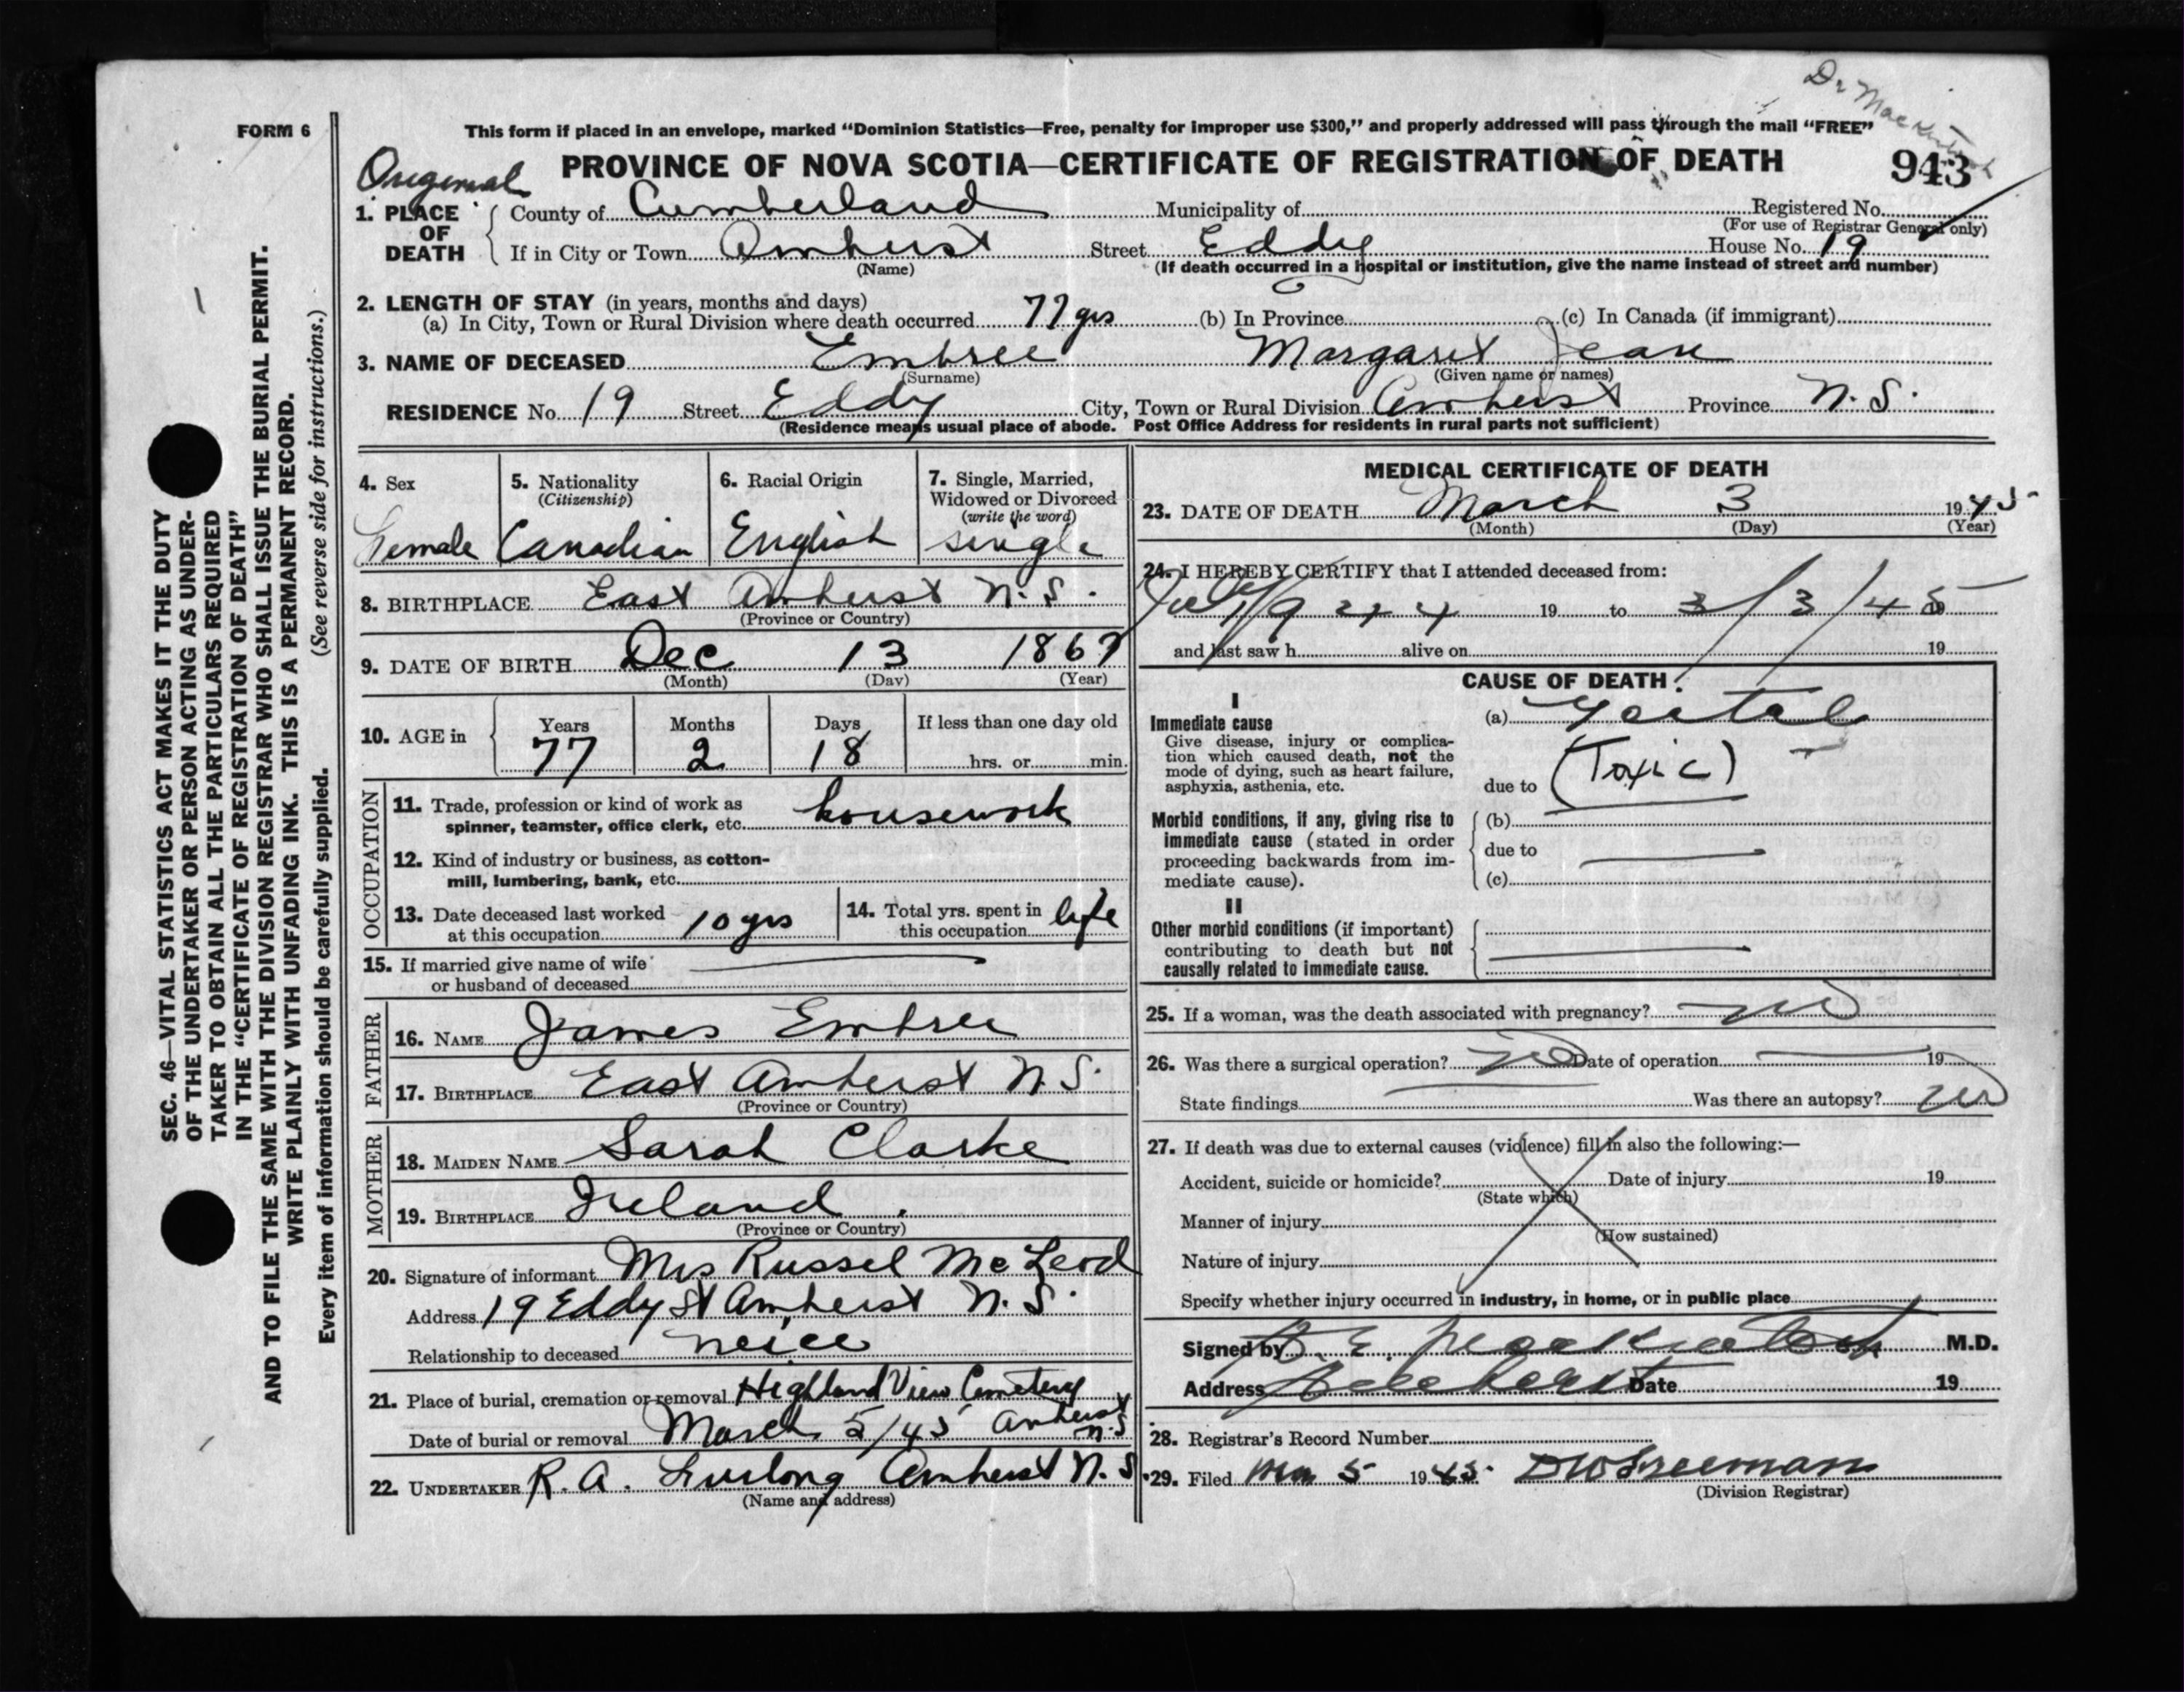 Dr MacKintosh
FORM 6
This form if placed in an envelope, marked “Dominion Statistics—Free, penalty for improper use $300,” and properly addressed will pass through the mail “FREE”
Original
PROVINCE OF NOVA SCOTIA—CERTIFICATE OF REGISTRATION OF DEATH 943
1. PLACE OF DEATH County of Cumberland Municipality of Registered No.
(For use of Registrar General only)
If in City or Town Amherst Street Eddy House No. 19
(Name) (If death occurred in a hospital or institution, give the name instead of street and number)
2. LENGTH OF STAY (in years, months and days)
(a) In City, Town or Rural Division where death occurred 77 yrs (b) In Province (c) In Canada (if immigrant)
3. NAME OF DECEASED Embree Margaret Jean
(Surname) (Given name or names)
RESIDENCE No. 19 Street Eddy City, Town or Rural Division Amherst Province N.S.
(Residence means usual place of abode. Post Office Address for residents in rural parts not sufficient)
4. Sex 5. Nationality 6. Racial Origin 7. Single, Married,
(Citizenship) Widowed or Divorced
(write the word)
Female Canadian English single
8. BIRTHPLACE East Amherst N.S.
(Province or Country)
9. DATE OF BIRTH Dec 13 1867
(Month) (Day) (Year)
10. AGE in Years Months Days If less than one day old
77 2 18 hrs. or min.
OCCUPATION
11. Trade, profession or kind of work as
spinner, teamster, office clerk, etc. housework
12. Kind of industry or business, as cotton-
mill, lumbering, bank, etc.
13. Date deceased last worked 14. Total yrs. spent in
at this occupation 10 yrs this occupation life
15. If married give name of wife
or husband of deceased
FATHER
16. NAME James Embree
17. BIRTHPLACE East Amherst N.S.
(Province or Country)
MOTHER
18. MAIDEN NAME Sarah Clarke
19. BIRTHPLACE Ireland.
(Province or Country)
20. Signature of informant Mrs Russel McLeod
Address 19 Eddy St Amherst N.S.
Relationship to deceased neice
21. Place of burial, cremation or removal Highland View Cemetery
Date of burial or removal March 5/45 Amherst N.S
22. UNDERTAKER R. A. Furlong Amherst N.S
(Name and address)
MEDICAL CERTIFICATE OF DEATH
23. DATE OF DEATH March 3 1945
(Month) (Day) (Year)
24. I HEREBY CERTIFY that I attended deceased from:
July 1944 19 to 3/3/45 19
and last saw h alive on 19
CAUSE OF DEATH
I
Immediate cause (a)
Give disease, injury or complica-
tion which caused death, not the
mode of dying, such as heart failure,
asphyxia, asthenia, etc. due to (Toxic)
Morbid conditions, if any, giving rise to (b)
immediate cause (stated in order due to
proceeding backwards from im-
mediate cause). (c)
II
Other morbid conditions (if important)
contributing to death but not
causally related to immediate cause.
25. If a woman, was the death associated with pregnancy? no
26. Was there a surgical operation? no Date of operation 19
State findings Was there an autopsy? no
27. If death was due to external causes (violence) fill in also the following:—
Accident, suicide or homicide? Date of injury 19
(State which)
Manner of injury
(How sustained)
Nature of injury
Specify whether injury occurred in industry, in home, or in public place
Signed by E. Mackintosh M.D.
Address Amherst Date 19
28. Registrar's Record Number
29. Filed Mar 5 1945 DW Freeman
(Division Registrar)
SEC. 46—VITAL STATISTICS ACT MAKES IT THE DUTY
OF THE UNDERTAKER OR PERSON ACTING AS UNDER-
TAKER TO OBTAIN ALL THE PARTICULARS REQUIRED
IN THE “CERTIFICATE OF REGISTRATION OF DEATH”
AND TO FILE THE SAME WITH THE DIVISION REGISTRAR WHO SHALL ISSUE THE BURIAL PERMIT.
WRITE PLAINLY WITH UNFADING INK. THIS IS A PERMANENT RECORD.
(See reverse side for instructions.)
Every item of information should be carefully supplied.